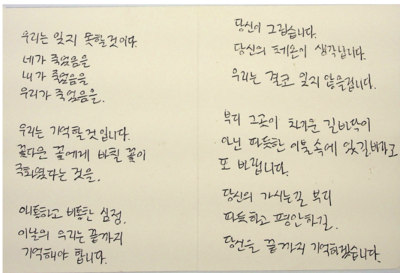 우리는 잊지 못할것이다.
네가 죽었음을
내가 죽었음을
우리가 죽었음을.
우리는 기억할것입니다.
꽃다운 꽃에게 바칠 꽃이
국화였다는 것을.
애통하고 비통한 심정.
이날의 우리는 끝까지
기억해야 합니다.
당신이 그립습니다.
당신의 체온이 생각납니다.
우리는 결코 잊지 않을겁니다.
부디 그곳이 차가운 길바닥이
아닌 따뜻한 이불속에 있길바라고
또 바랍니다.
당신의 가시는길 부디
따뜻하고 평안하길.
당신을 끝까지 기억하겠습니다.